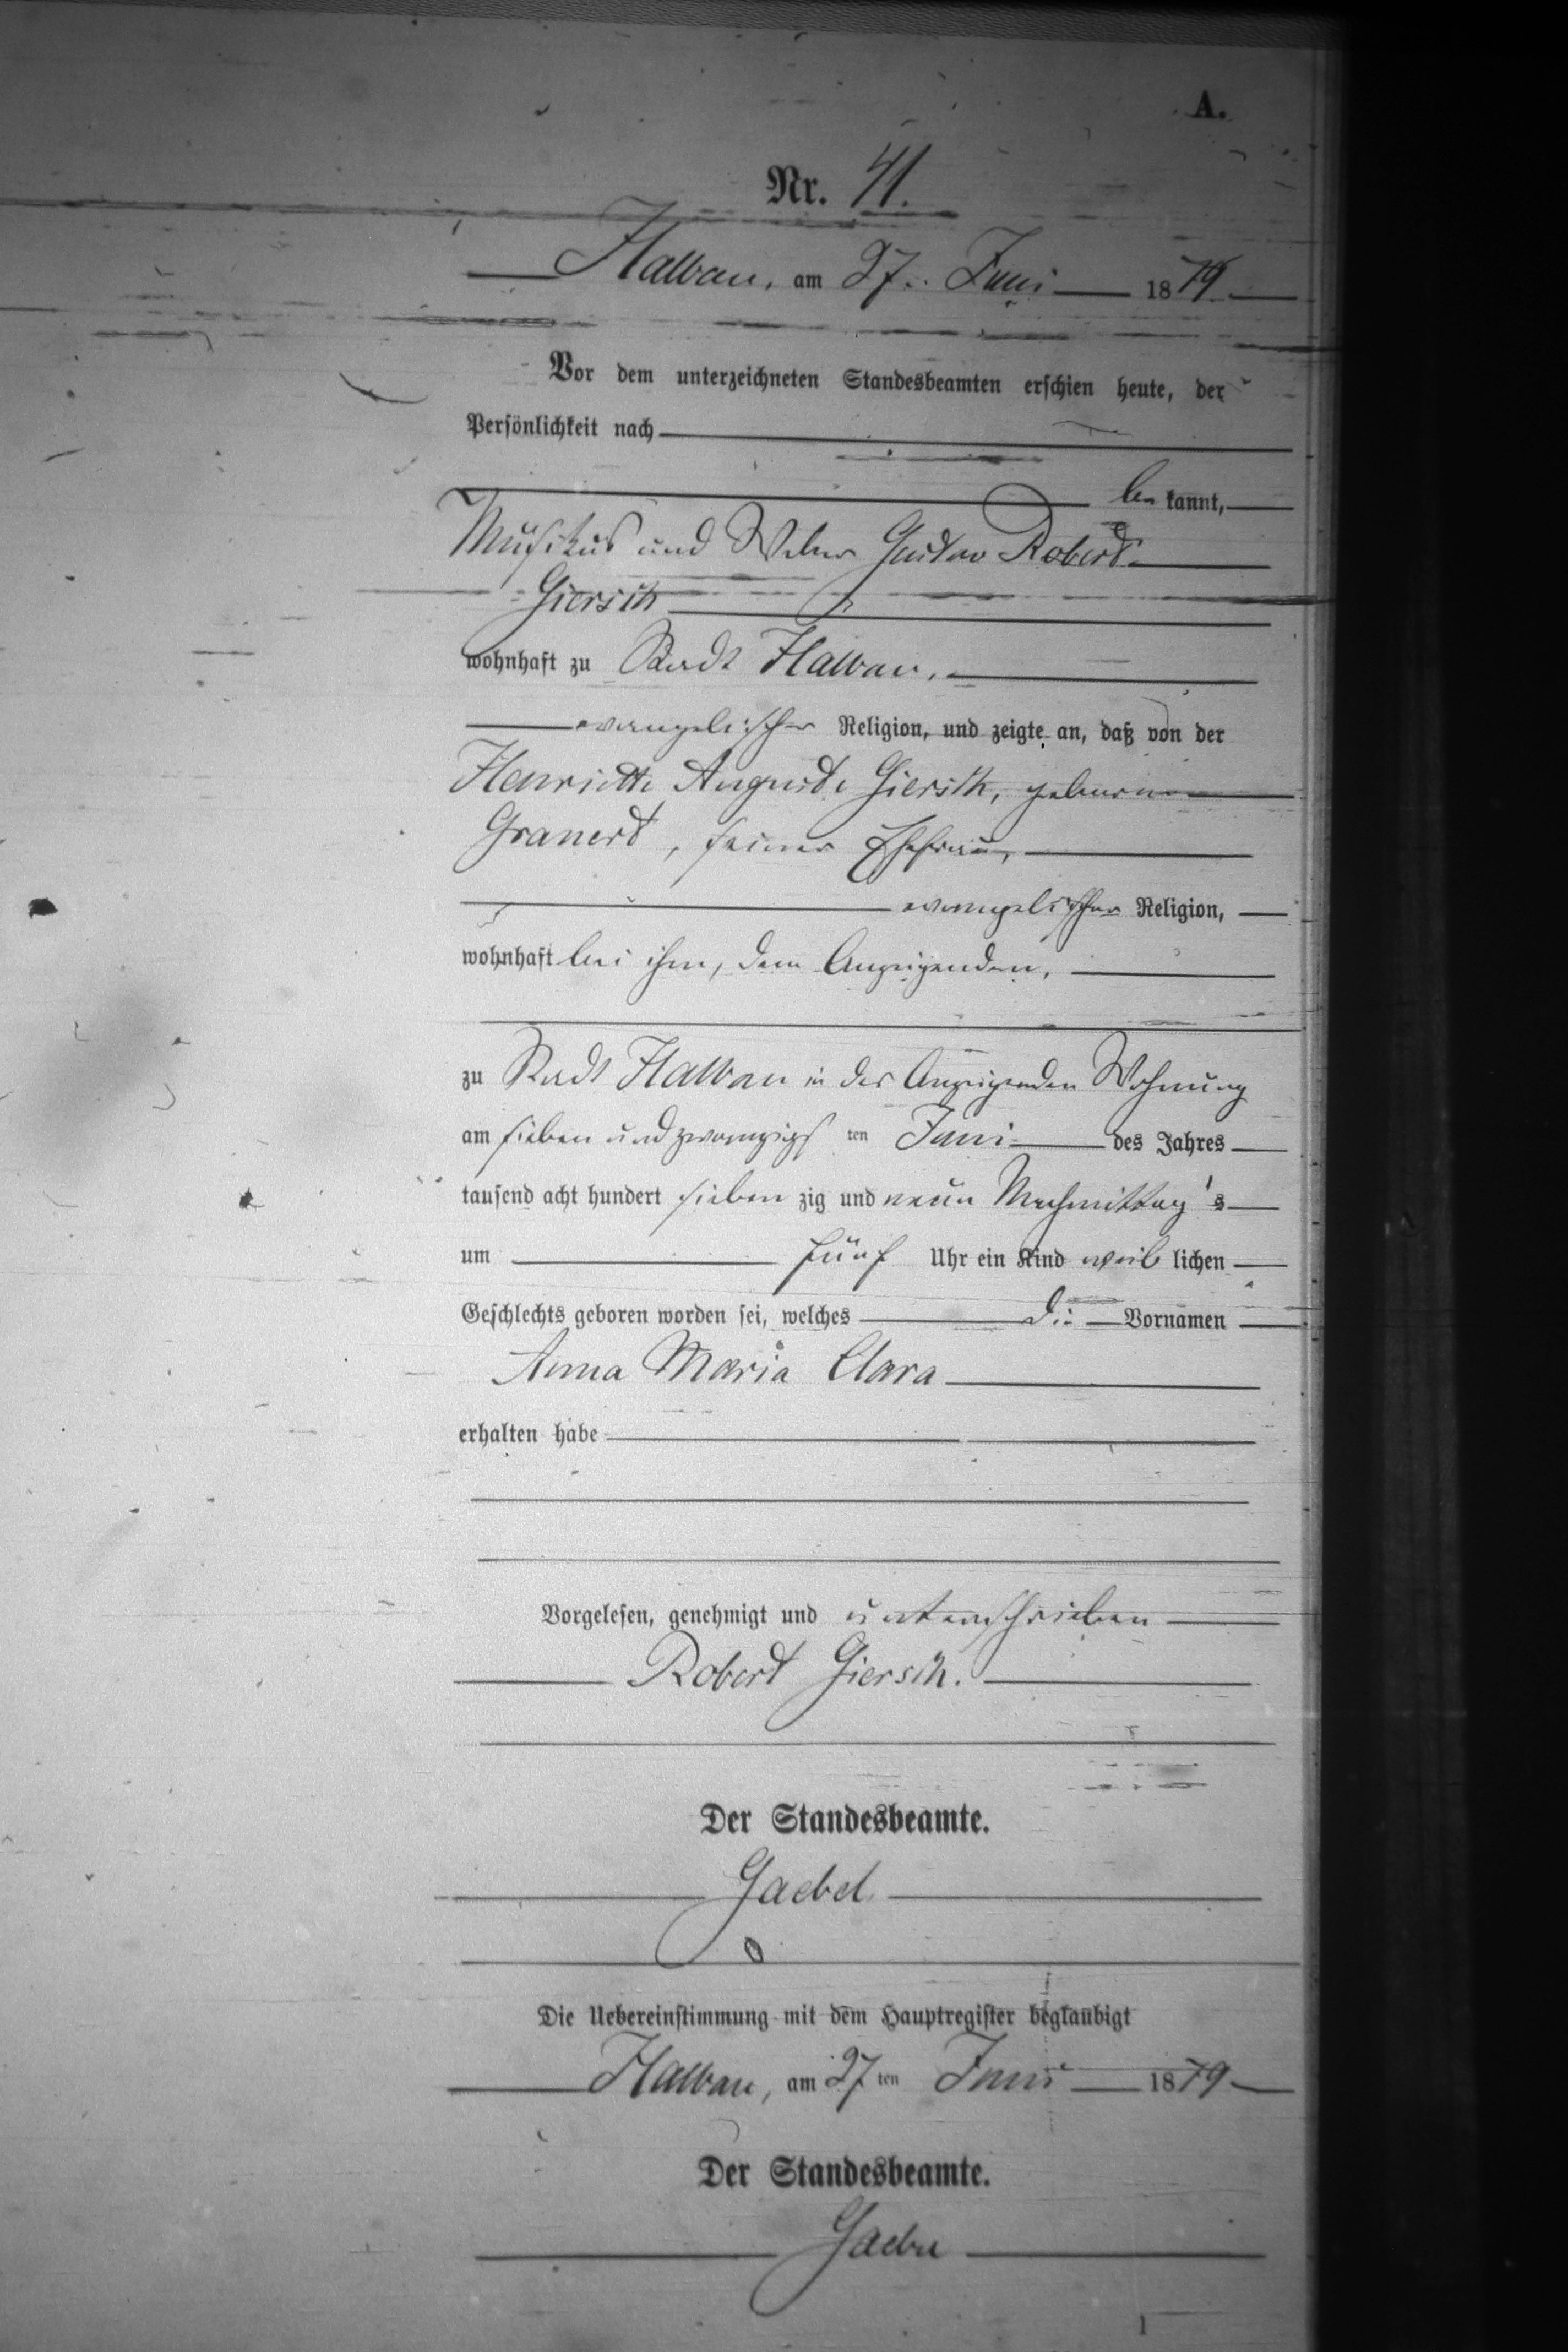 A.
Nr. 41.
Halbau, am 27. Juni 1879
Vor dem unterzeichneten Standesbeamten erschien heute, der
Persönlichkeit nach
be kannt,
Musikus und Weber Gustav Robert
Giersch
wohnhaft zu Stadt Halbau,
evangelischer Religion, und zeigte an, daß von der
Henriette Auguste Giersch, geborene
Granert, seiner Ehefrau,
evangelischer Religion,
wohnhaft bei ihm, dem Anzeigenden,
zu Stadt Halbau in des Anzeigenden Wohnung
am sieben und zwanzigs ten Juni des Jahres
tausend acht hundert sieben zig und neun Nachmittag's
um fünf Uhr ein Kind weib lichen
Geschlechts geboren worden sei, welches die Vornamen
Anna Maria Clara
erhalten habe
Vorgelesen, genehmigt und unterschrieben
Robert Giersch.
Der Standesbeamte.
Gaebel
Die Uebereinstimmung mit dem Hauptregister beglaubigt
Halbau, am 27 ten Juni 1879
Der Standesbeamte.
Gaebel